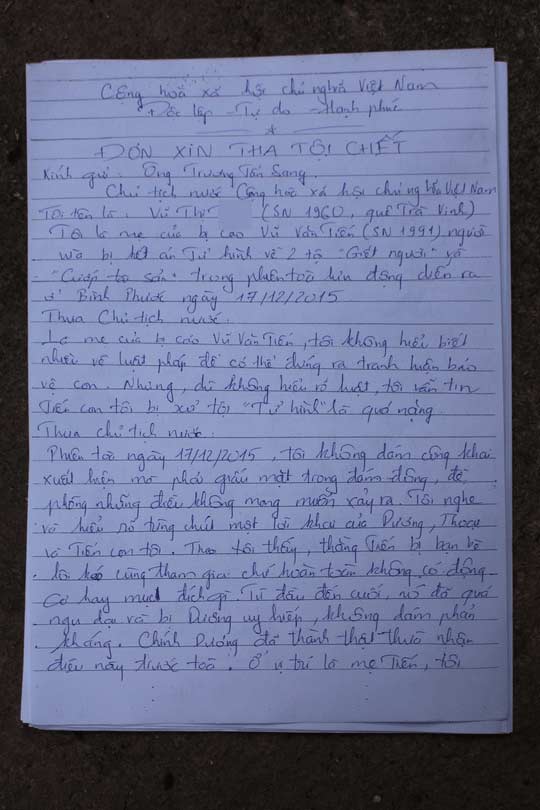 Cộng hoà xã hội chủ nghĩa Việt Nam
Độc lập - Tự do - Hạnh phúc
ĐƠN XIN THA TỘI CHẾT
Kính gửi: Ông Trương Tấn Sang.
Chủ tịch nước Cộng hoà xã hội chủ nghĩa Việt Nam
Tôi tên là: Vũ Thị (SN 1960, quê Trà Vinh)
Tôi là mẹ của bị cáo Vũ Văn Tiến (SN 1991) người
vừa bị kết án Tử hình về 2 tội "Giết người" và
"Cướp tài sản" trong phiên toà lưu động diễn ra
ở Bình Phước ngày 17/12/2015
Thưa Chủ tịch nước.
Là mẹ của bị cáo Vũ Văn Tiến, tôi không hiểu biết
nhiều về luật pháp để có thể đứng ra tranh luận bảo
vệ con. Nhưng, dù không hiểu rõ luật, tôi vẫn tin
Tiến con tôi bị xử tội "Tử hình" là quá nặng.
Thưa chủ tịch nước.
Phiên toà ngày 17/12/2015, tôi không dám công khai
xuất hiện mà phải giấu mặt trong đám đông, đề
phòng những điều không mong muốn xảy ra. Tôi nghe
và hiểu rõ từng chút một lời khai của Dương, Thoại
và Tiến con tôi. Theo tôi thấy, thằng Tiến bị bạn bè
lôi kéo cùng tham gia chứ hoàn toàn không có động
cơ hay mục đích gì. Từ đầu đến cuối, nó đã quá
ngu dại và bị Dương uy hiếp, không dám phản
kháng. Chính Dương đã thành thật thừa nhận
điều này trước toà. Ở vị trí là mẹ Tiến, tôi